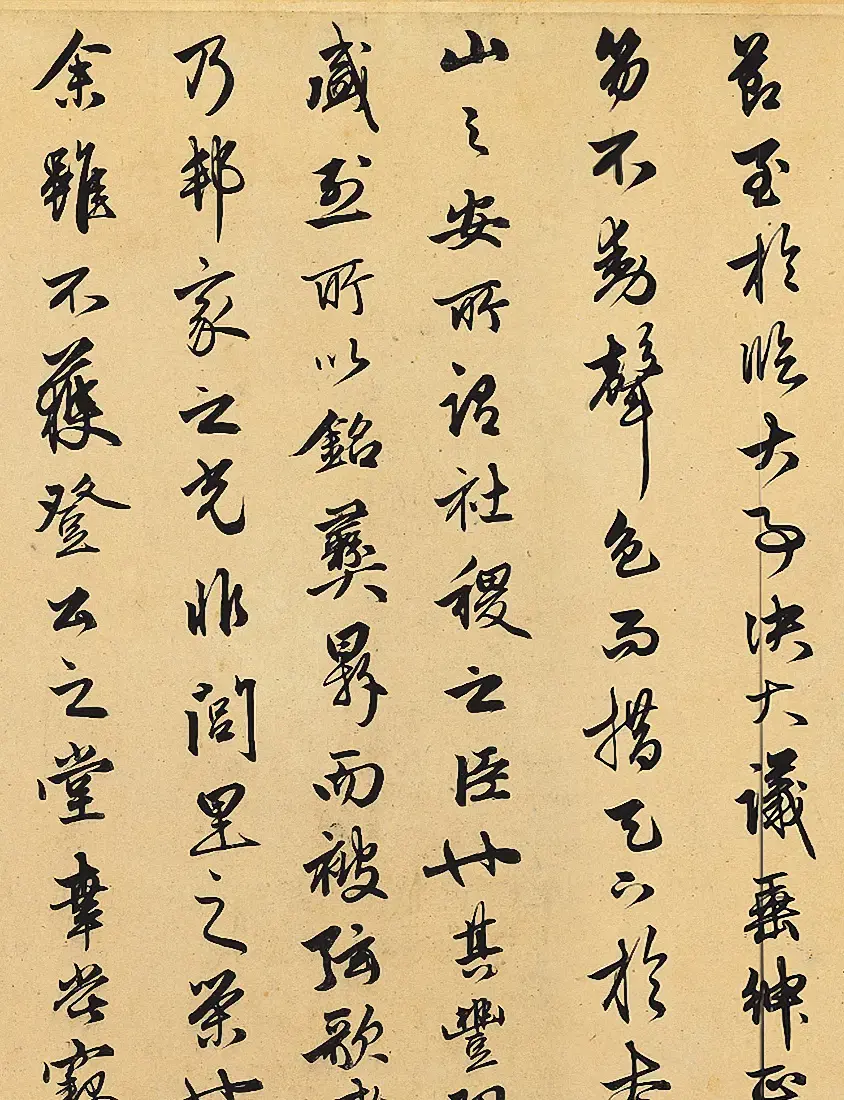 節至於臨大事決大議垂紳正
笏不動聲色而措天下於太
山之安所謂社稷之臣也其豐
盛烈所以銘彝鼎而被弦歌者
乃邦家之光非閭里之榮也
余雖不獲登公之堂幸嘗竊